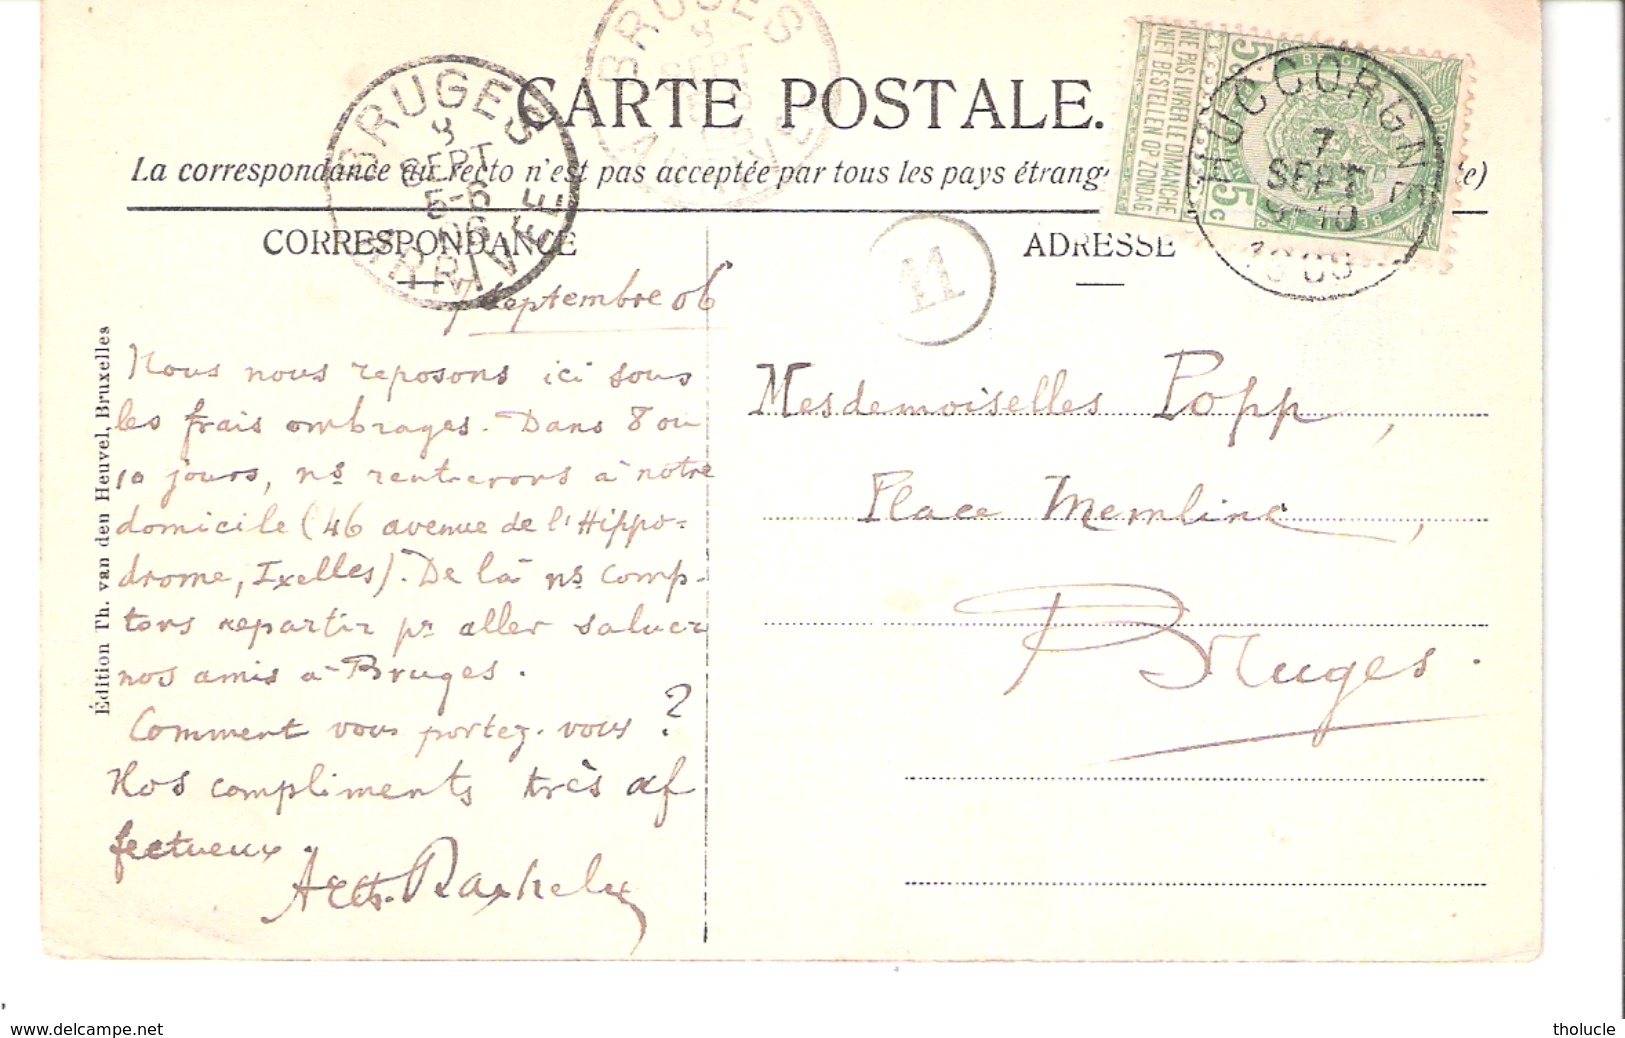 CARTE POSTALE.
La correspondance au recto n'est pas acceptée par tous les pays étrang
e)
CORRESPONDANCE
ADRESSE
BRUGES
8
SEPT
5-6
06
ARRIVÉE
BRUGES
8
SEPT
ARRIVÉE
M
NE PAS LIVRER LE DIMANCHE
NIET BESTELLEN OP ZONDAG
5c 5c
HUCCORGNE
7
SEPT
9-10
7 Septembre 06
Nous nous reposons ici sous
les frais ombrages. Dans 8 ou
10 jours, ns rentrerons à notre
domicile (46 avenue de l'Hippo-
drome, Ixelles). De là ns comp-
tons repartir pr aller saluer
nos amis à Bruges.
Comment vous portez-vous ?
Nos compliments très af
fectueux.
Mesdemoiselles Popp,
Place Memlinc,
Bruges.
Édition Th. van den Heuvel, Bruxelles
www.delcampe.net
tholucle